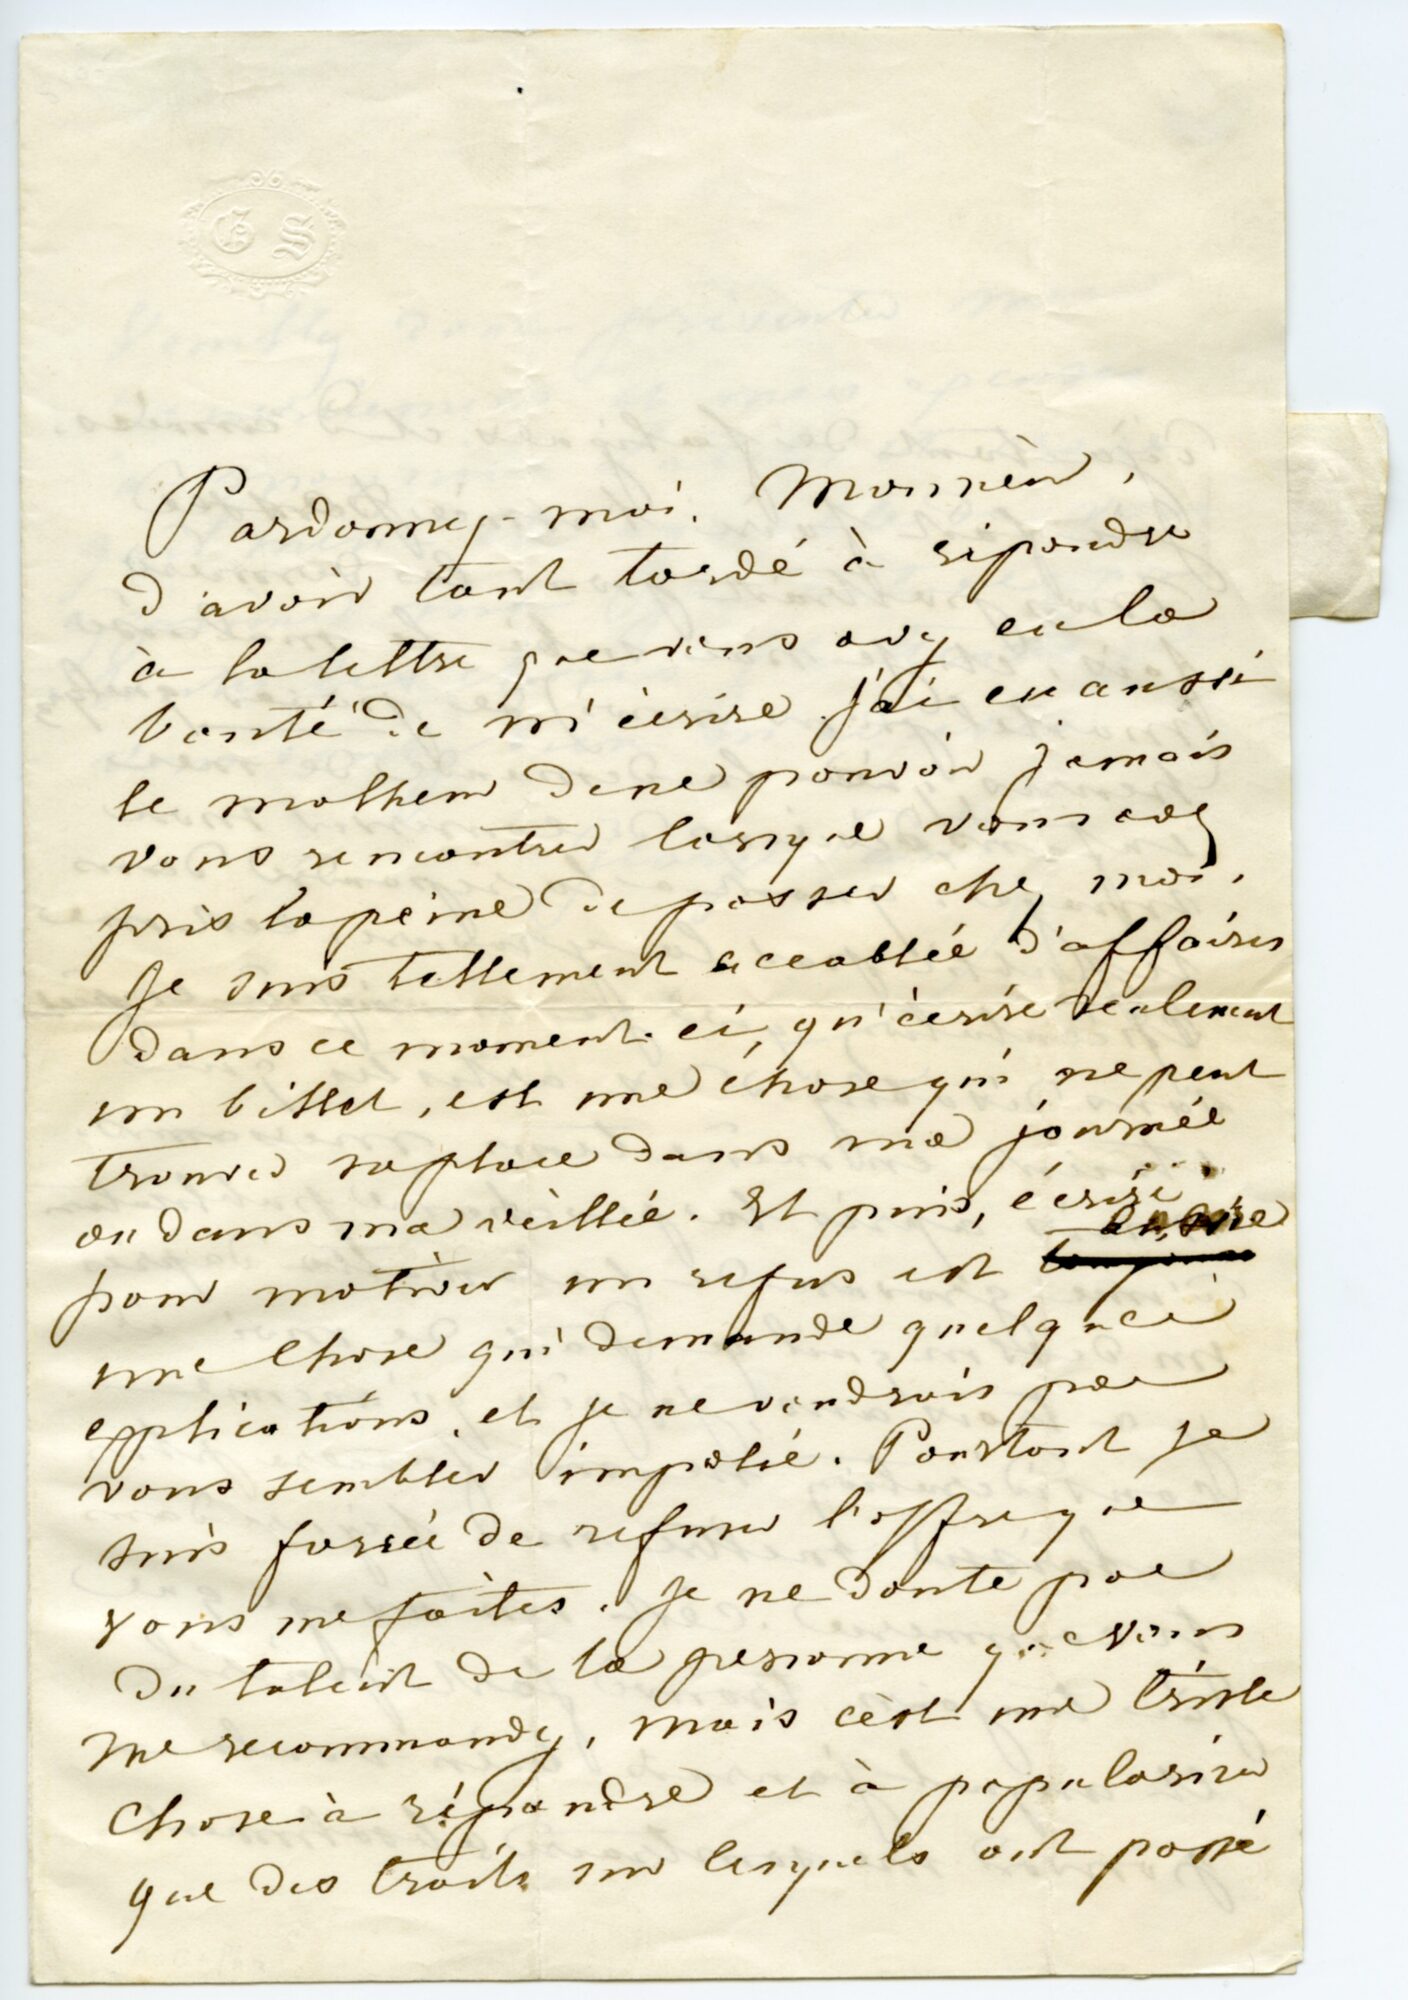 G S
Pardonnez-moi, Monsieur,
d'avoir tant tardé à répondre
à la lettre que vous avez eu la
bonté de m'écrire. j'ai eu aussi
le malheur de ne pouvoir jamais
vous rencontrer lorsque vous avez
pris la peine de passer chez moi.
Je suis tellement accablée d'affaires
dans ce moment-ci, qu'écrire seulement
un billet, est une chose qui ne peut
trouver sa place dans ma journée
ou dans ma veillée. Et puis, écrire
pour motiver un refus est encore
une chose qui demande quelques
explications, et je ne voudrais pas
vous sembler impolie. Pourtant je
suis forcée de refuser l'offre que
vous me faites. Je ne doute pas
du talent de la personne que vous
me recommandez, mais c'est une triste
chose à répandre et à populariser
que des traits sur lesquels ont passé